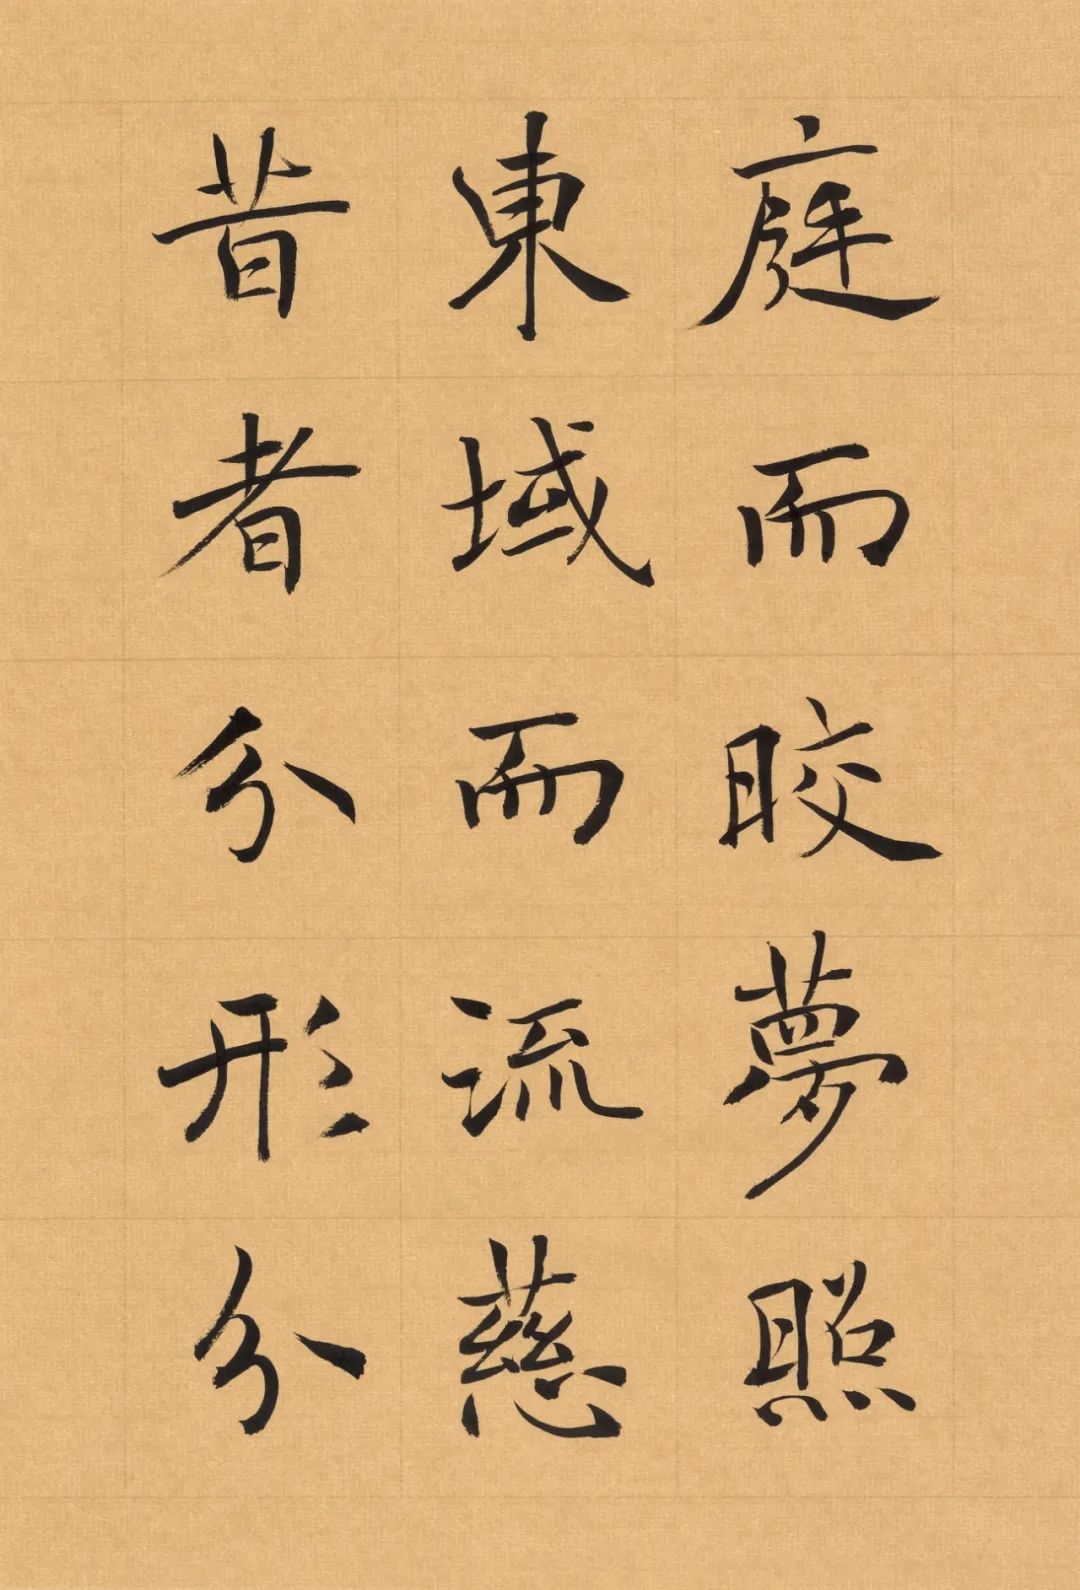 庭而皎夢照
東域而流慈
昔者分形分